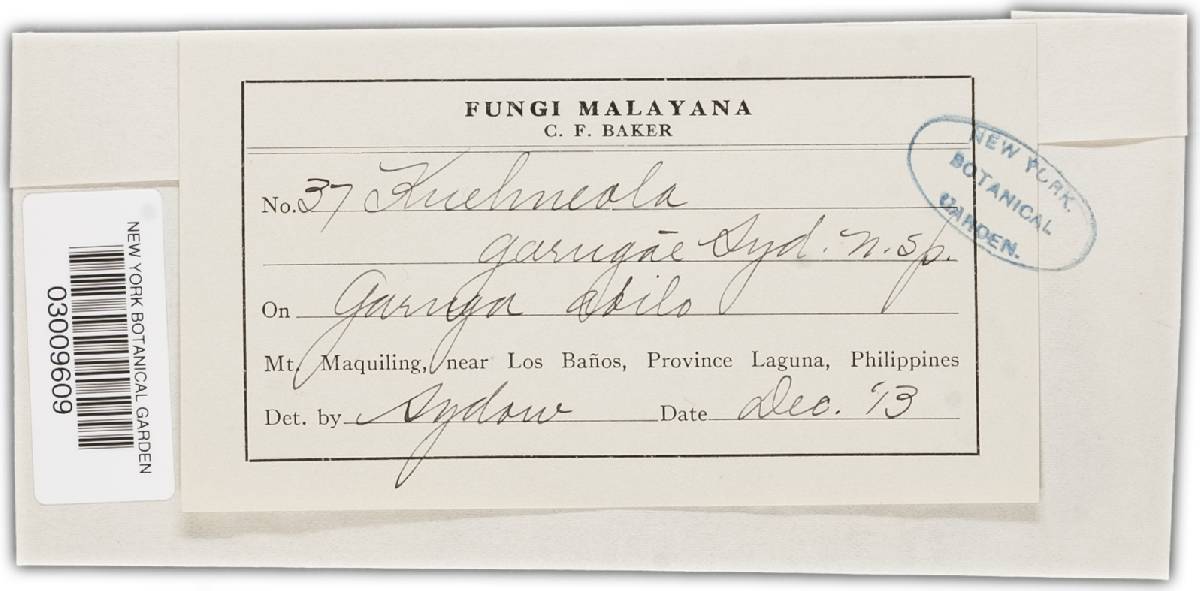 FUNGI MALAYANA
C. F. BAKER
No. 37 Kuehneola
garugae Syd. n. sp.
On Garuga
Mt. Maquiling, near Los Baños, Province Laguna, Philippines
Det. by Sydow Date Dec. '13
NEW YORK
BOTANICAL
GARDEN.
NEW YORK BOTANICAL GARDEN
03009609